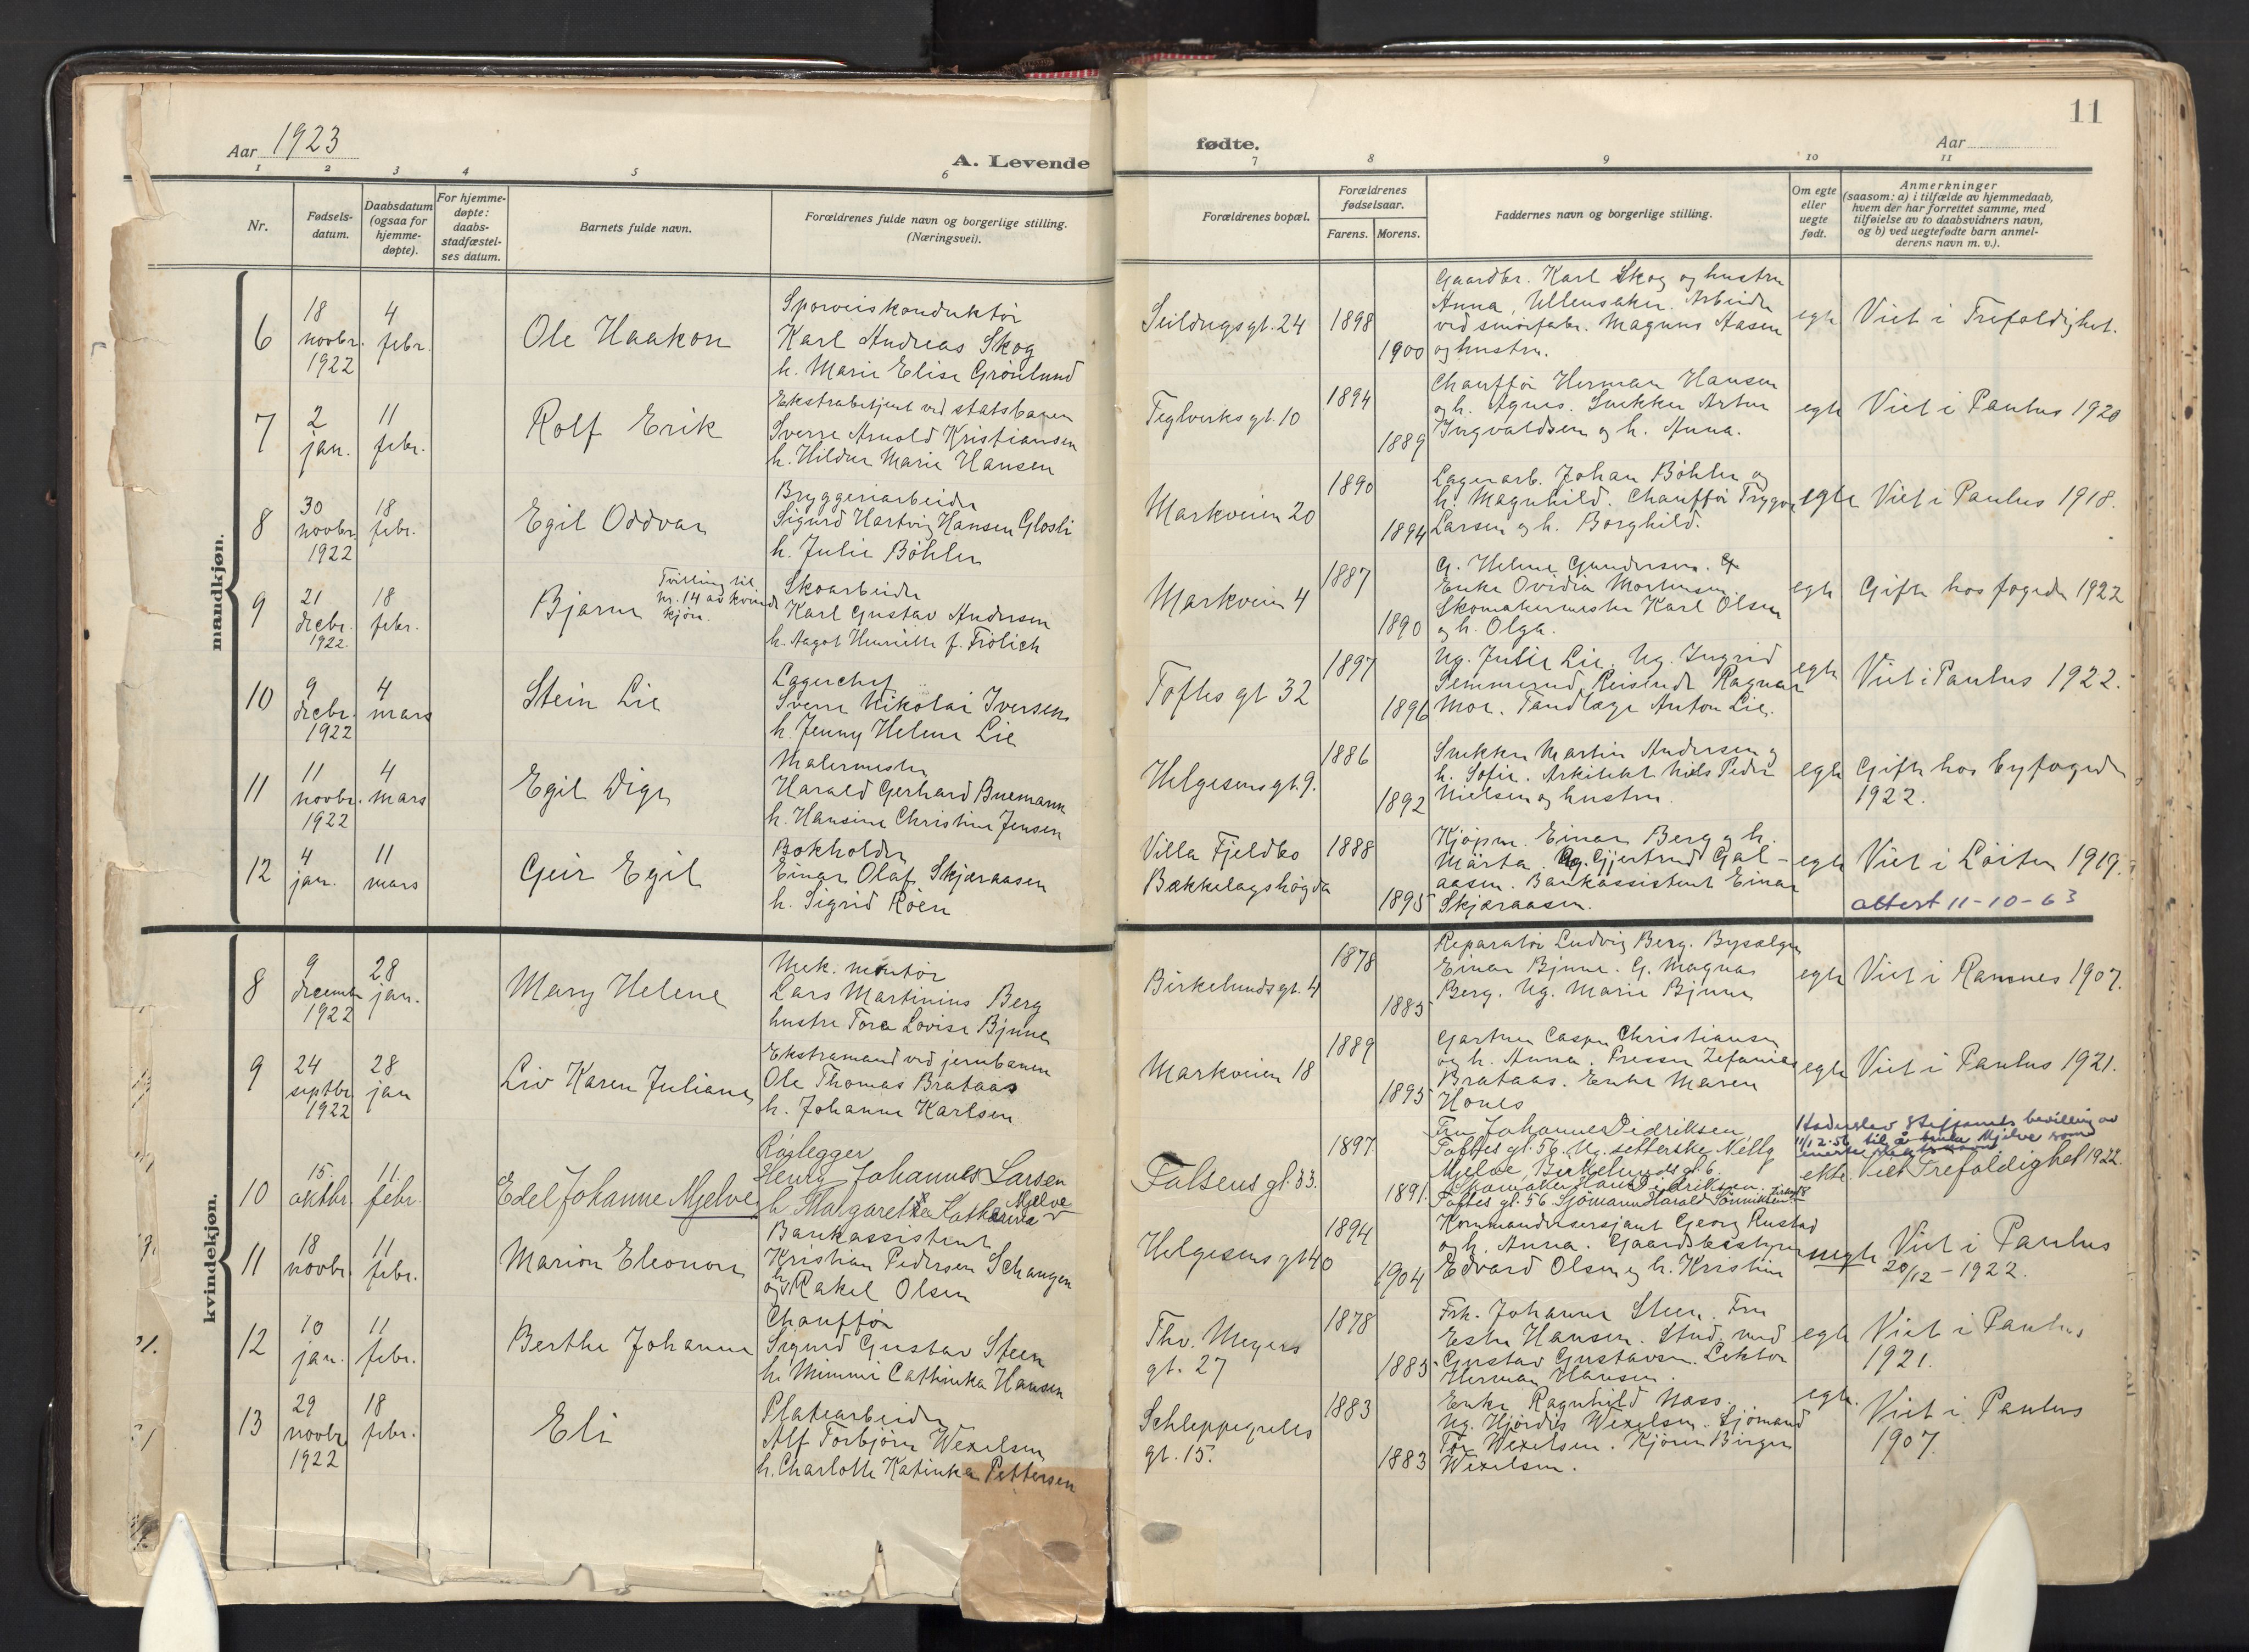 11
Aar 1923
A. Levende
fødte.
Aar
1 2 3 4 5 6
7 8 9 10 11
Nr.
Fødsels-
datum.
Daabsdatum
(ogsaa for
hjemme-
døpte).
For hjemme-
døpte:
daabs-
stadfæstel-
ses datum.
Barnets fulde navn.
Forældrenes fulde navn og borgerlige stilling.
(Næringsvei).
Forældrenes bopæl.
Forældrenes
fødselsaar.
Farens. Morens.
Faddernes navn og borgerlige stilling.
Om egte
eller
uegte
født.
Anmerkninger
(saasom: a) i tilfælde av hjemmedaab,
hvem der har forrettet samme, med
tilføielse av to daabsvidners navn,
og b) ved uegtefødte barn anmel-
derens navn m. v.).
mandkjøn.
6
18
novbr.
1922
4
febr.
Ole Haakon
Sporveiskonduktör
Karl Andreas Skog
h. Marie Elise Grönlund
Seildugsgt. 24
1898
1900
Gaardbr. Karl Skog og hustru
Anna, Ullensaker. Arbeider
ved smörfabr. Magnus Aasen
og hustru.
egte
Viet i Trefoldighet.
7
2
jan.
11
febr.
Rolf Erik
Ekstrabetjent ved statsbanen
Sverre Arnold Kristiansen
h. Hildur Marie Hansen
Teglverksgt. 10
1894
1889
Chaufför Herman Hansen
og h. Agnes. Snekker Artur
Ingvaldsen og h. Anna.
egte
Viet i Paulus 1920
8
30
novbr.
1922
18
febr.
Egil Oddvar
Bryggeriarbeider
Sigurd Hartvig Hansen Glosli
h. Julie Böhler
Markveien 20
1890
1894
Lagerarb. Johan Böhler og
h. Magnhild. Chaufför Trygve
Larsen og h. Borghild.
egte
Viet i Paulus 1918.
9
21
decbr.
1922.
18
febr.
Bjarne
Tvilling til
nr. 14 av kvinde
kjön.
Skoarbeider
Karl Gustav Andersen
h. Aagot Henriette f. Frölich
Markveien 4
1887
1890
G. Helene Gundersen.
Enke Ovidia Mortensen
Skomakermester Karl Olsen
og h. Olga.
egte
Gifte hos fogden 1922
10
9
decbr.
1922
4
mars
Stein Lie
Lagerchef
Sverre Nikolai Iversen
h. Jenny Helene Lie
Toftes gt 32
1897
1896
Ug. Julie Lie. Ug. Ingrid
Semmerud. Reisende Ragnar
Moe. Tandlæge Anton Lie.
egte
Viet i Paulus 1922.
11
11
novbr.
1922
4
mars
Egil Dige
Malermester
Harald Gerhard Buemann
h. Hansine Christine Jensen
Helgesens gt. 9.
1886
1892
Snekker Martin Andersen og
h. Sofie. Arkitekt Niels Peder
Nielsen og hustru.
egte
Gifte hos byfogden
1922.
12
4
jan.
11
mars
Geir Egil
Bokholder
Einar Olaf Skjæraasen
h. Sigrid Roen
Villa Fjeldbo
Bækkelagshögda
1888
1895
Kjöpm. Einar Berg og h.
Märta. Ug. Gjertrud Gal-
aasen. Bankassistent Einar
Skjæraasen.
egte
Viet i Löiten 1919.
attest 11-10-63
kvindekjøn.
8
9
decembr
1922
28
jan.
Mary Helene
Mek. montör
Lars Martinius Berg
hustru Tora Lovise Bjune
Birkelundsgt. 4
1878
1885
Reparatör Ludvig Berg. Bysælger
Einar Bjune. G. Magna
Berg. Ug. Marie Bjune
egte
Viet i Ramnes 1907.
9
24
septbr.
1922
28
jan
Liv Karen Juliane
Ekstramand ved jernbanen
Ole Thomas Brataas
h. Johanne Karlsen
Markveien 18
1889
1895
Gartner Casper Christiansen
og h. Anna. Presser Zefanias
Brataas. Enke Maren
Hones
egte
Viet i Paulus 1921.
10
15.
oktbr.
11.
febr.
Edel Johanne Mjelve
Rörlegger
Henry Johannes Larsen
h Margaretha Katharina Mjelve
Falsens gt. 33.
1897
1891.
Fru Johanne Didriksen
Toftes gt. 56. Ug. setterske Nelly
Mjelve, Birkelundsgt. 6.
Skomaker Hans Didriksen.
Toftes gt. 56. Sjömann Harald Sönniksen
ekte.
Haderslev Stiftamts bevilling av
11/12-56 til å bruke Mjelve som
eneste slektsnavn
Viet Trefoldighet 1922.
11
18
novbr.
11
febr.
Marion Eleonore
Bankassistent
Kristian Pedersen Schangen
og h. Rakel Olsen
Helgesens gt 40
1894
1904
Kommandersersjant Georg Rustad
og h. Anna. Gaardsbestyrer
Edvard Olsen og h. Kristine
uegte
Viet i Paulus
20/12-1922.
12
10
jan.
11
febr.
Berthe Johanne
Chaufför
Sigurd Gustav Steen
h. Mimmi Cathinka Hansen
Thv. Meyers
gt. 27
1878
1885
Frk. Johanne Steen. Fru
Ester Hansen. Stud. med
Gustav Gustavsen. Lektor
Herman Hansen.
egte
Viet i Paulus
1921.
13
29
novbr.
1922
18
febr.
Eli
Platearbeider
Alf Torbjörn Wexelsen
h. Charlotte Katinka Pettersen
Schleppegrells
gt. 15.
1883
1883
Enke Ragnhild Næss.
Ug. Hjördis Wexelsen. Sjömand
Tor Wexelsen. Kjörer Birger
Wexelsen.
egte.
Viet i Paulus
1907.